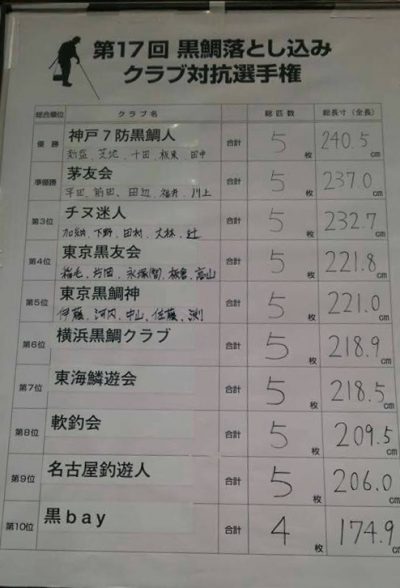 第17回 黒鯛落とし込み
クラブ対抗選手権
総合順位 クラブ名 総匹数 総長寸(全長)
優勝 神戸7防黒鯛人 合計 5枚 240.5cm
芝地、十田、板東、田中
準優勝 茅友会 合計 5枚 237.0cm
平田、前田、田辺、福井、川上
第3位 チヌ迷人 合計 5枚 232.7cm
加納、下野、田村、大林、辻
第4位 東京黒友会 合計 5枚 221.8cm
稲毛、片田、永塚(智)、板倉、高山
第5位 東京黒鯛神 合計 5枚 221.0cm
伊藤、河内、中山、佐藤、渕
第6位 横浜黒鯛クラブ 合計 5枚 218.9cm
第7位 東海鱗遊会 合計 5枚 218.5cm
第8位 軟釣会 合計 5枚 209.5cm
第9位 名古屋釣遊人 合計 5枚 206.0cm
第10位 黒bay 合計 4枚 174.9cm